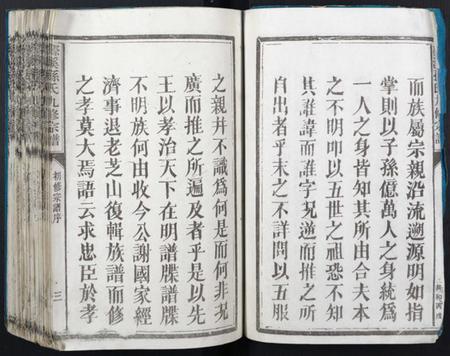 而族屬宗親沿流遡源明如指
掌則以子孫億萬人之身統爲
一人之身皆知其所由合夫本
之不明叩以五世之祖恐不知
其誰諱而誰字况遡而推之所
自出者乎末之不詳問以五服
之親并不識爲何是而何非况
廣而推之所遍及者乎是以先
王以孝治天下在明譜牒譜牒
不明族何由收今公謝國家經
濟事退老芝山復輯族譜而修
之孝莫大焉語云求忠臣於孝
孫氏九修宗譜
初修宗譜序
三